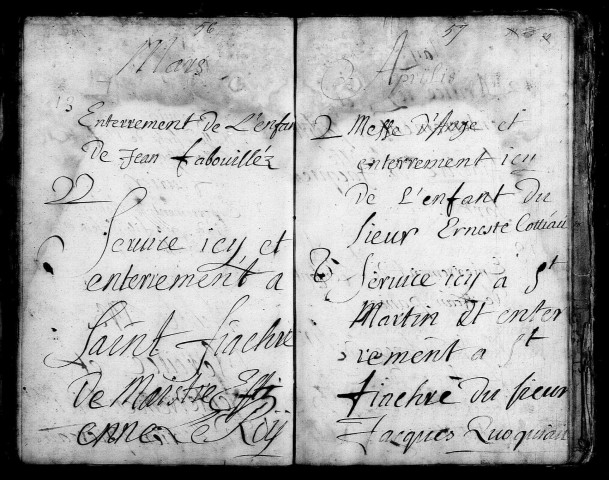 56
Mars
13
Enterrement de L'enfan
de Jean fabouilléz
22
Service icy et
enterrement a
Saint fiachre
de Maistre Esti
enne Le Roÿ
57
Aprilis
2 Messe d'Ange et
enterrement icy
de L'enfant du
sieur Erneste Cottéau
8 Service icy à St
Martin Et enter
rement a St
fiachre du sieur
Jacques